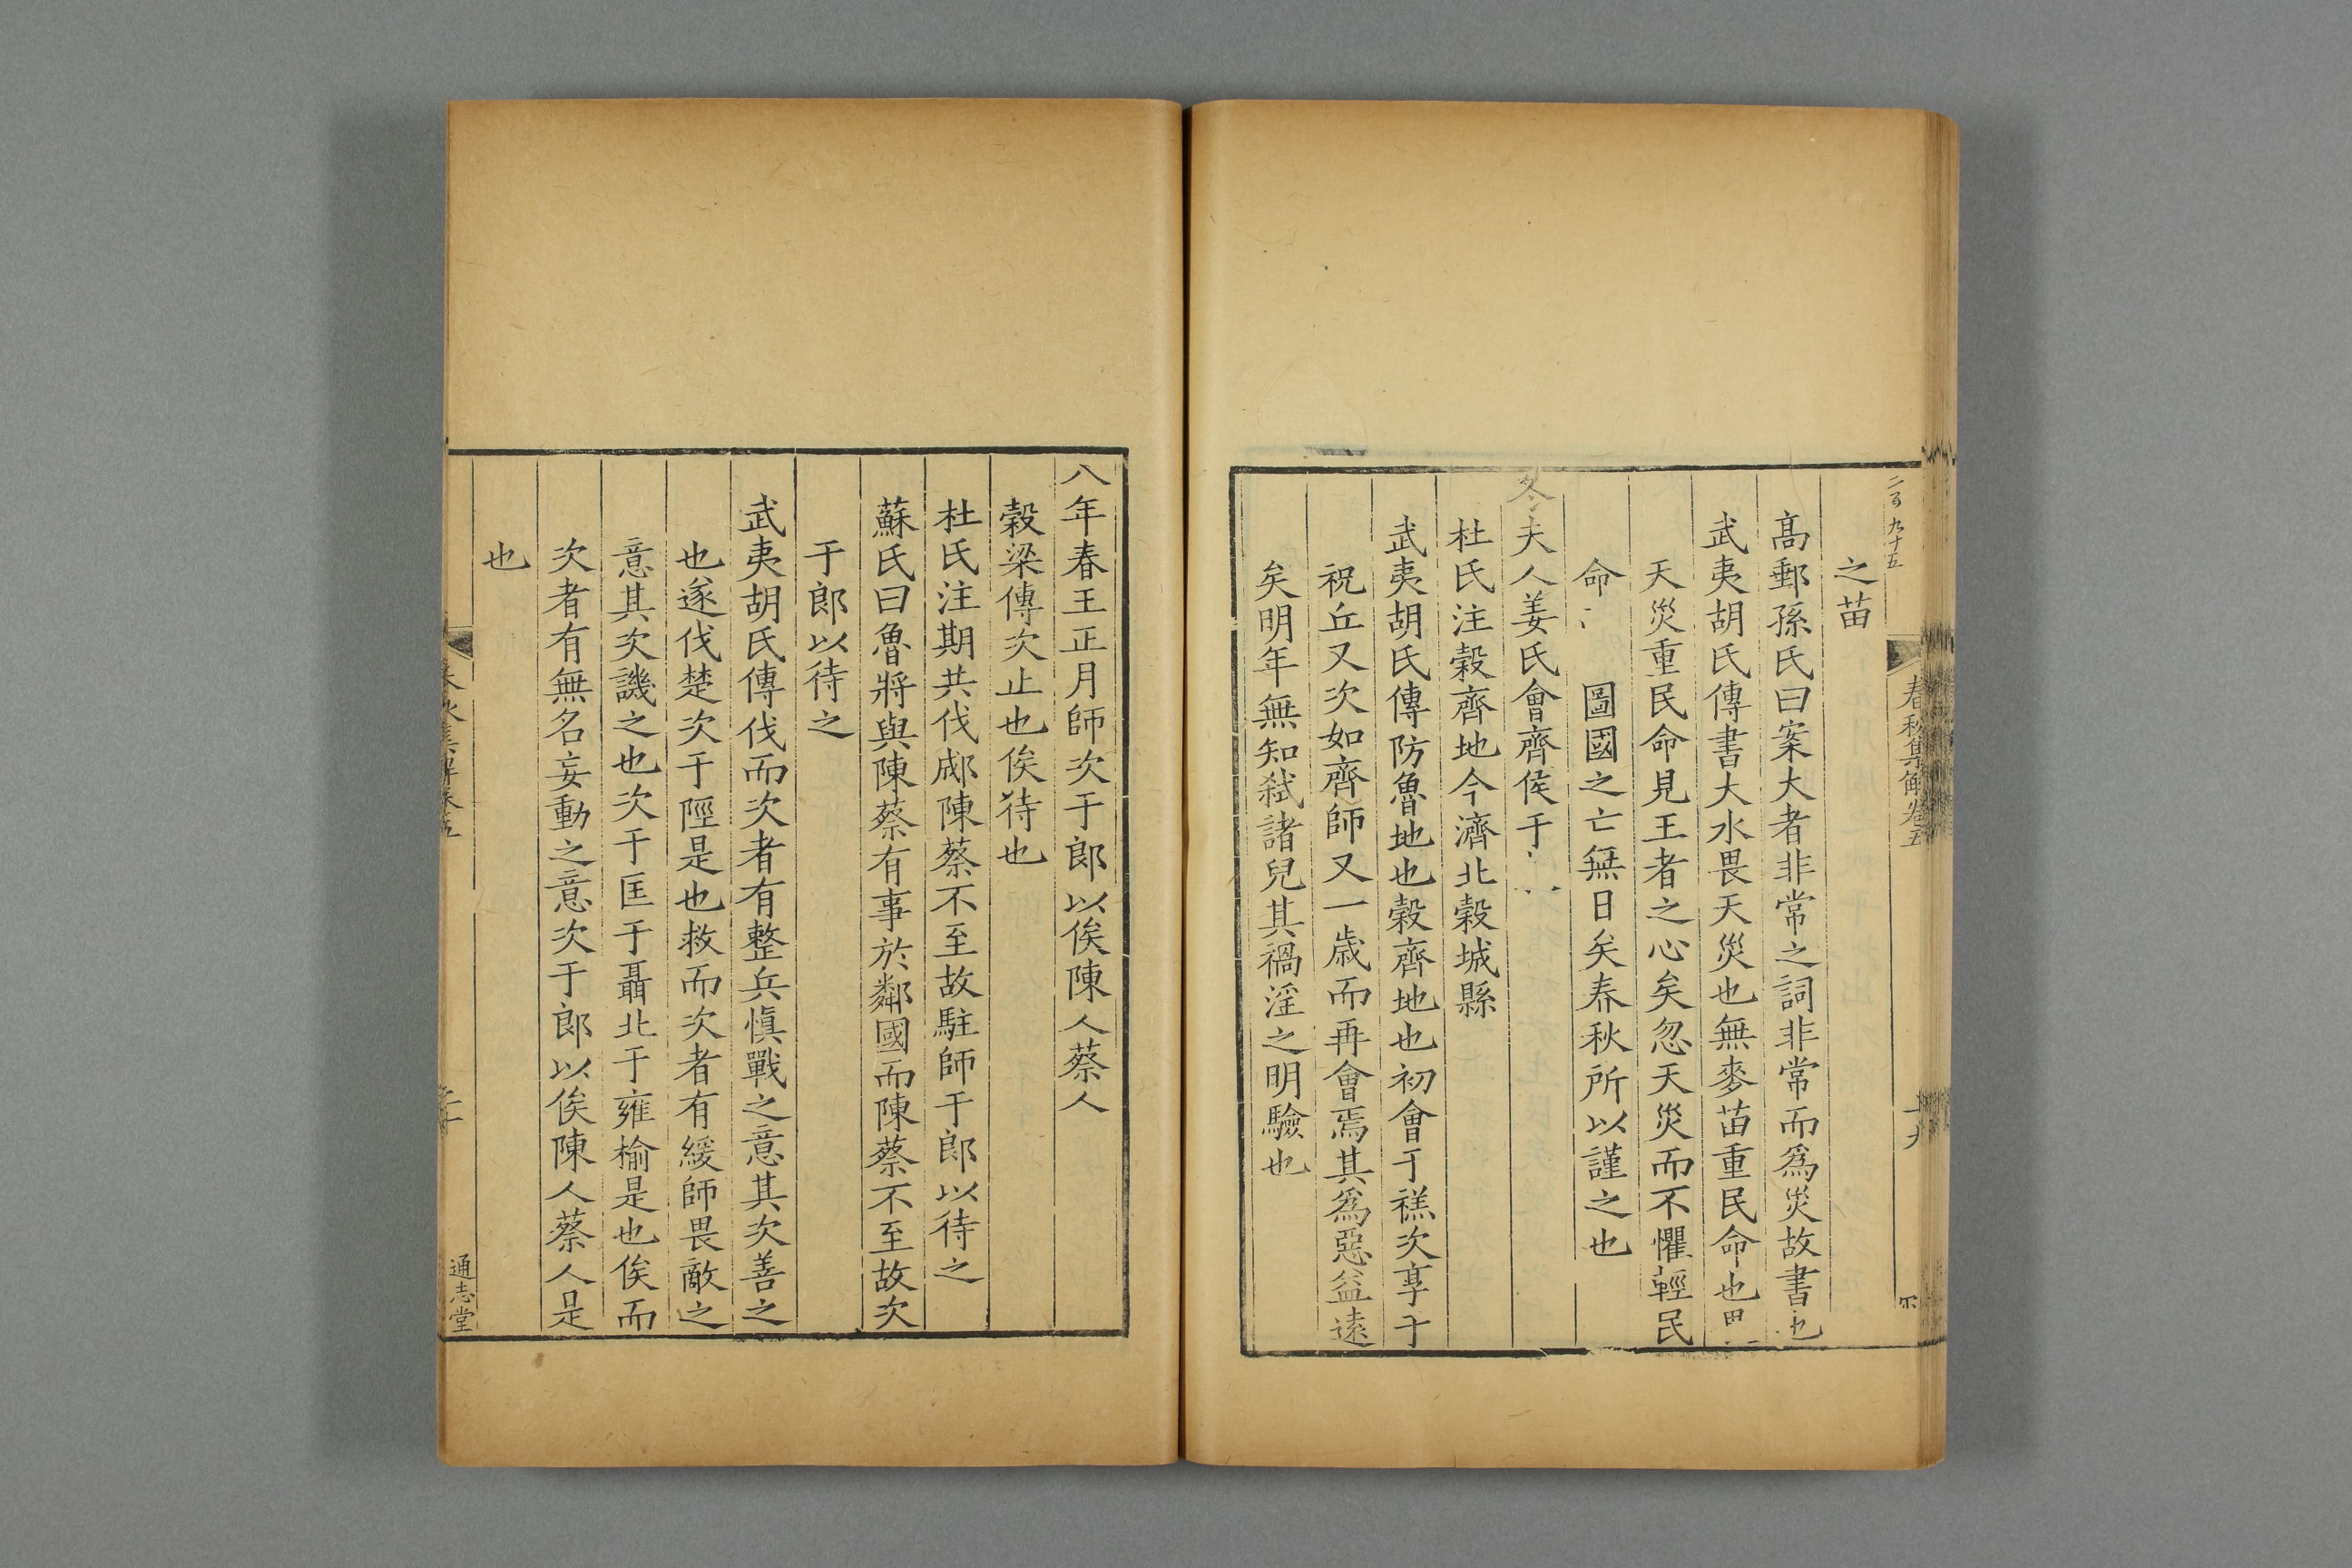 二百九十五
春秋集解卷五
十九
之苗
髙郵孫氏曰案大者非常之詞非常而爲災故書也
武夷胡氏傳書大水畏天災也無麥苗重民命也
天災重民命見王者之心矣忽天災而不懼輕民
命 圖國之亡無日矣春秋所以謹之也
冬夫人姜氏會齊侯于
杜氏注穀齊地今濟北穀城縣
武夷胡氏傳防魯地也穀齊地也初會于禚次享于
祝丘又次如齊師又一歳而再會焉其爲惡益遠
矣明年無知弑諸兒其禍淫之明驗也
八年春王正月師次于郎以俟陳人蔡人
穀梁傳次止也俟待也
杜氏注期共伐郕陳蔡不至故駐師于郎以待之
蘇氏曰魯將與陳蔡有事於鄰國而陳蔡不至故次
于郎以待之
武夷胡氏傳伐而次者有整兵慎戰之意其次善之
也遂伐楚次于陘是也救而次者有緩師畏敵之
意其次譏之也次于匡于聶北于雍榆是也俟而
次者有無名妄動之意次于郎以俟陳人蔡人是
也
春秋集解卷五
二十
通志堂